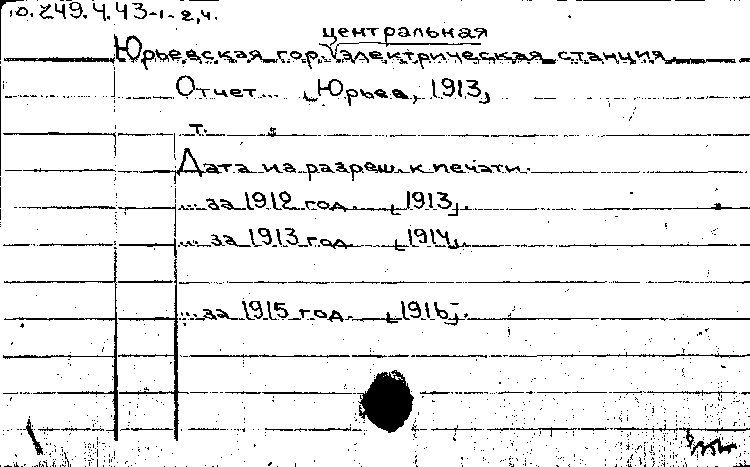 10.249.4.43-1-2,4.
центральная
Юрьевская гор. электрическая станция.
Отчет... [Юрьев, 1913]
т.
Дата на разреш. к печати.
... за 1912 год. [1913].
... за 1913 год. [1914].
... за 1915 год. [1916].